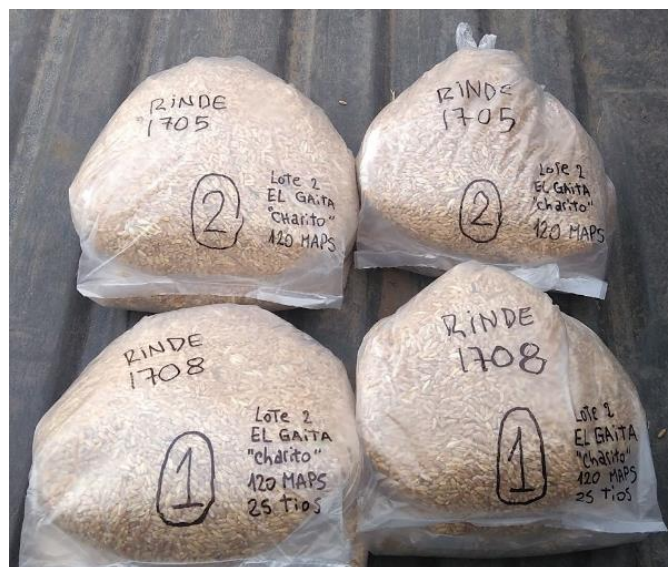 RiNDE
1705
2
Lote 2
EL GAitA
"CHarito"
120 MAPS
RiNDE
1705
2
Lote 2
EL GAitA
"charito"
120 MAPS
RiNDE
1708
1
Lote 2
EL GAitA
"charito"
120 MAPS
25 tios
RiNDE
1708
1
Lote 2
EL GAitA
"charito"
120 MAPS
25 tioS